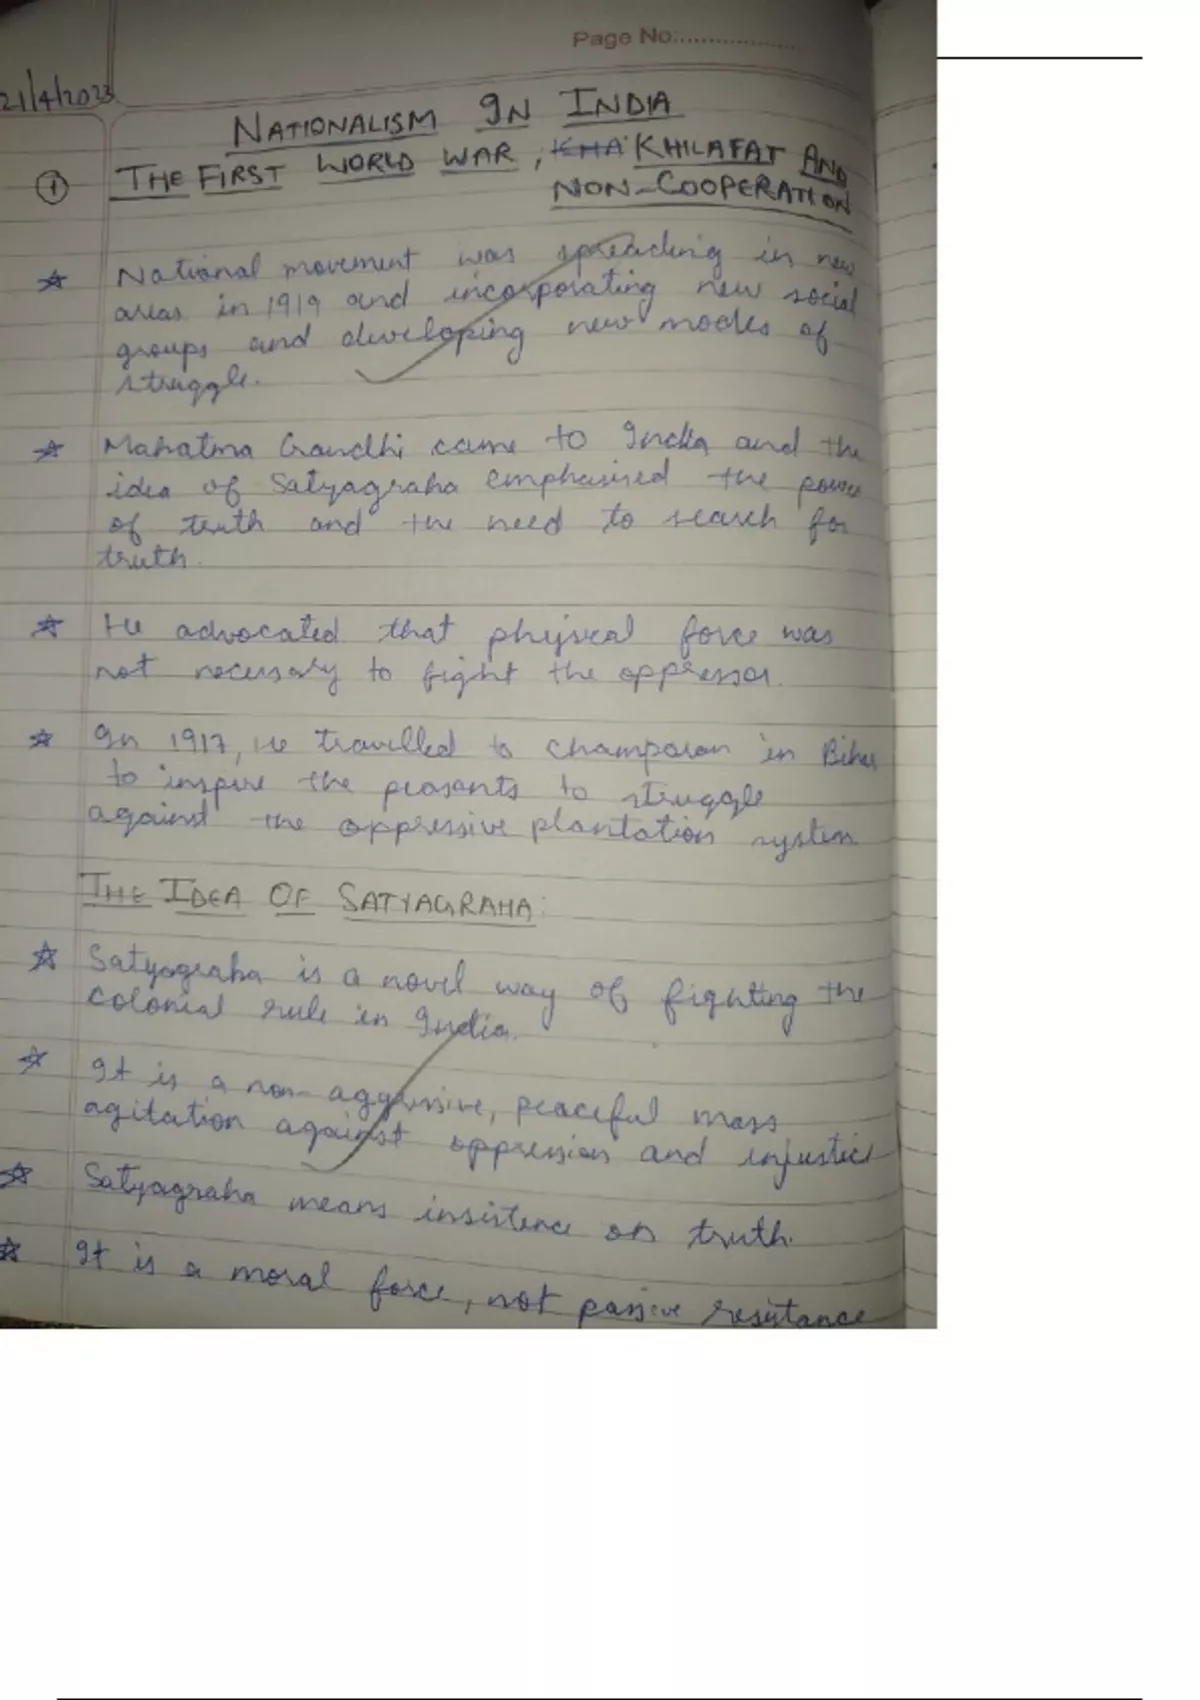 Page No:..................
21/4/2023
NATIONALISM IN INDIA
① THE FIRST WORLD WAR, KHA KHILAFAT AND
NON-COOPERATION
☆ National movement was spreading in new
areas in 1919 and incorporating new social
groups and developing new modes of
struggle.
☆ Mahatma Gandhi came to India and the
idea of Satyagraha emphasised the power
of truth and the need to search for
truth.
☆ He advocated that physical force was
not necessary to fight the oppressor.
☆ In 1917, He travelled to Champaran in Bihar
to inspire the peasants to struggle
against the oppressive plantation system
THE IDEA OF SATYAGRAHA:
☆ Satyagraha is a novel way of fighting the
colonial rule in India.
☆ It is a non-aggressive, peaceful mass
agitation against oppression and injustice
☆ Satyagraha means insistence on truth.
☆ It is a moral force, not passive resistance